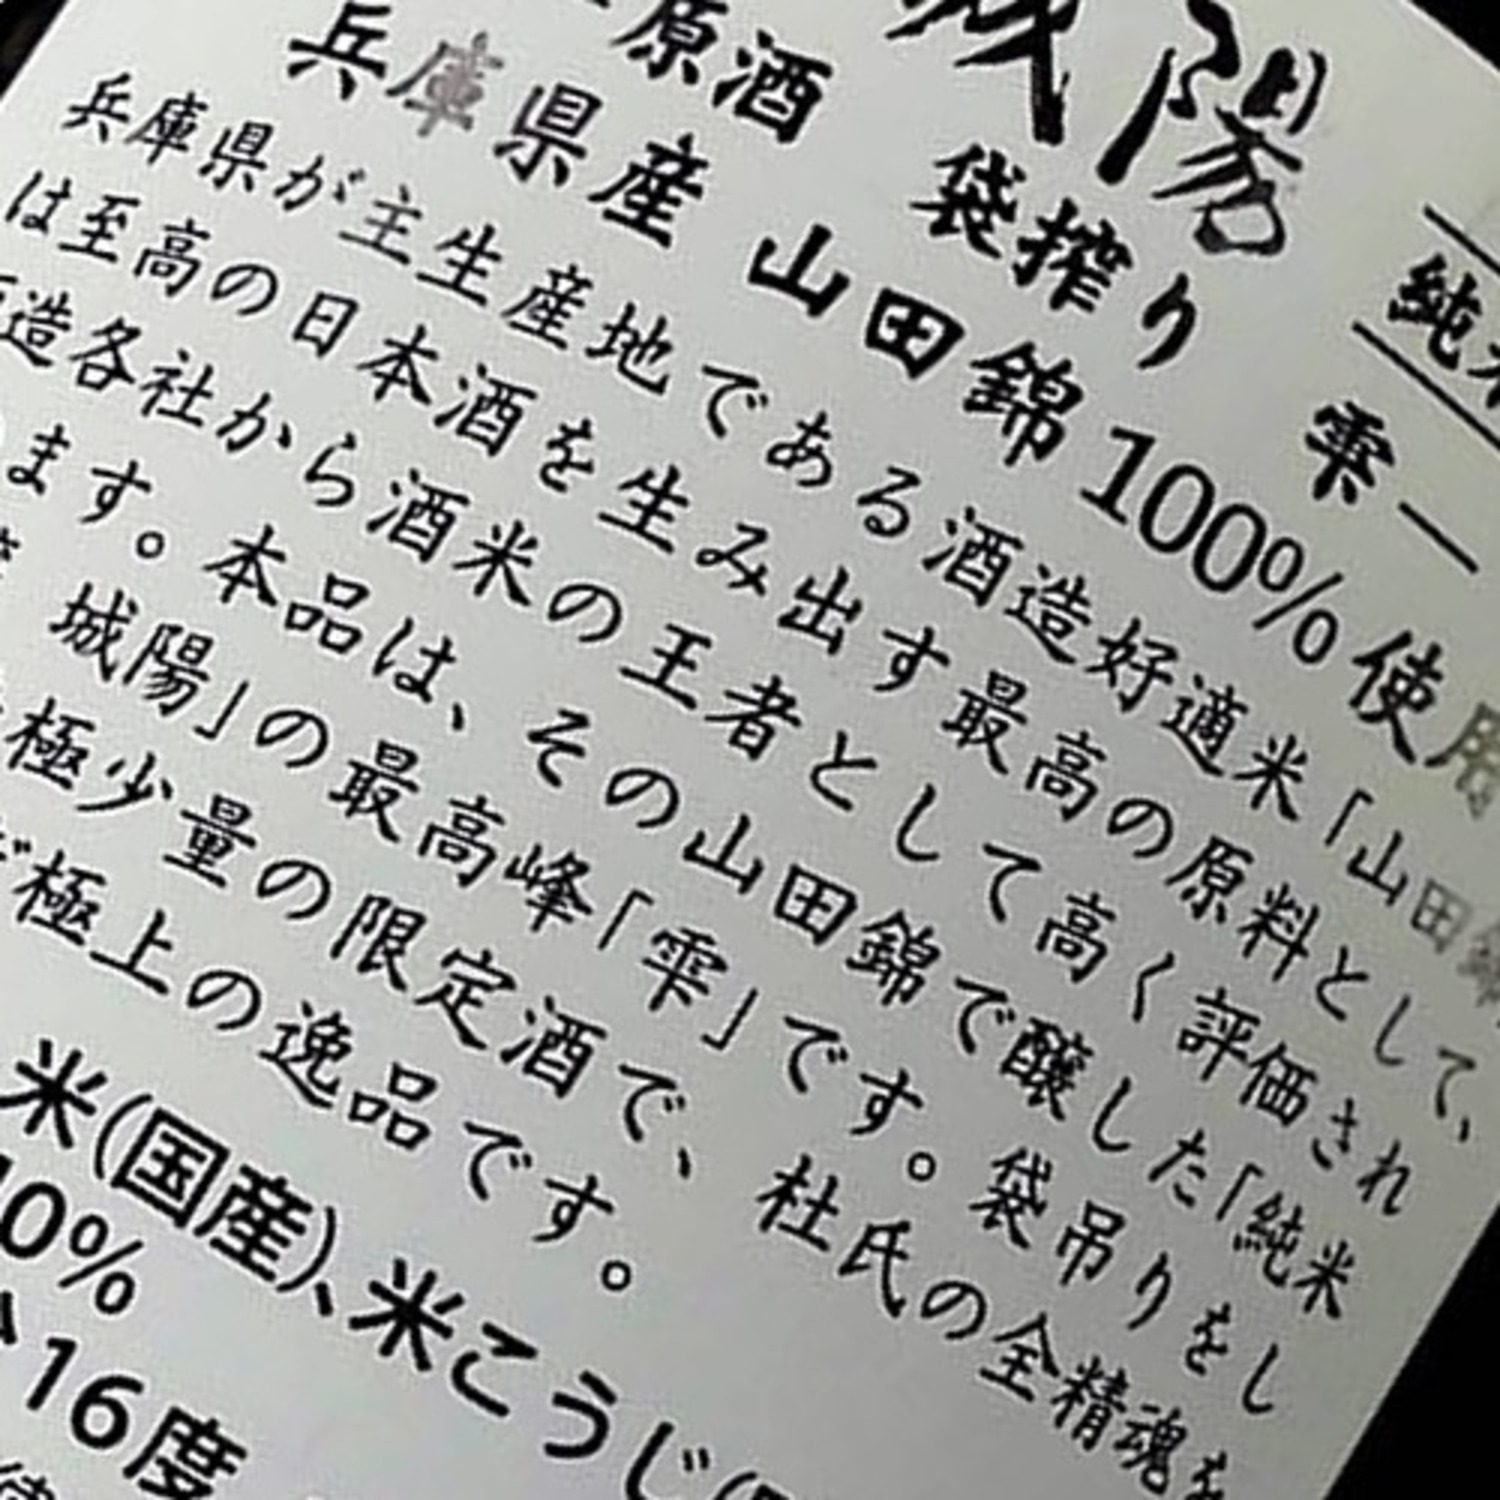 陽
純
原酒 袋搾り 雫 一
兵庫県産 山田錦100%使用
兵庫県が主生産地である酒造好適米「山田錦
は至高の日本酒を生み出す最高の原料として、
造各社から酒米の王者として高く評価され
ます。本品は、その山田錦で醸した「純米
城陽」の最高峰「雫」です。袋吊りをし
極少量の限定酒で、杜氏の全精魂を
極上の逸品です。
米(国産)、米こうじ(
0%
16度